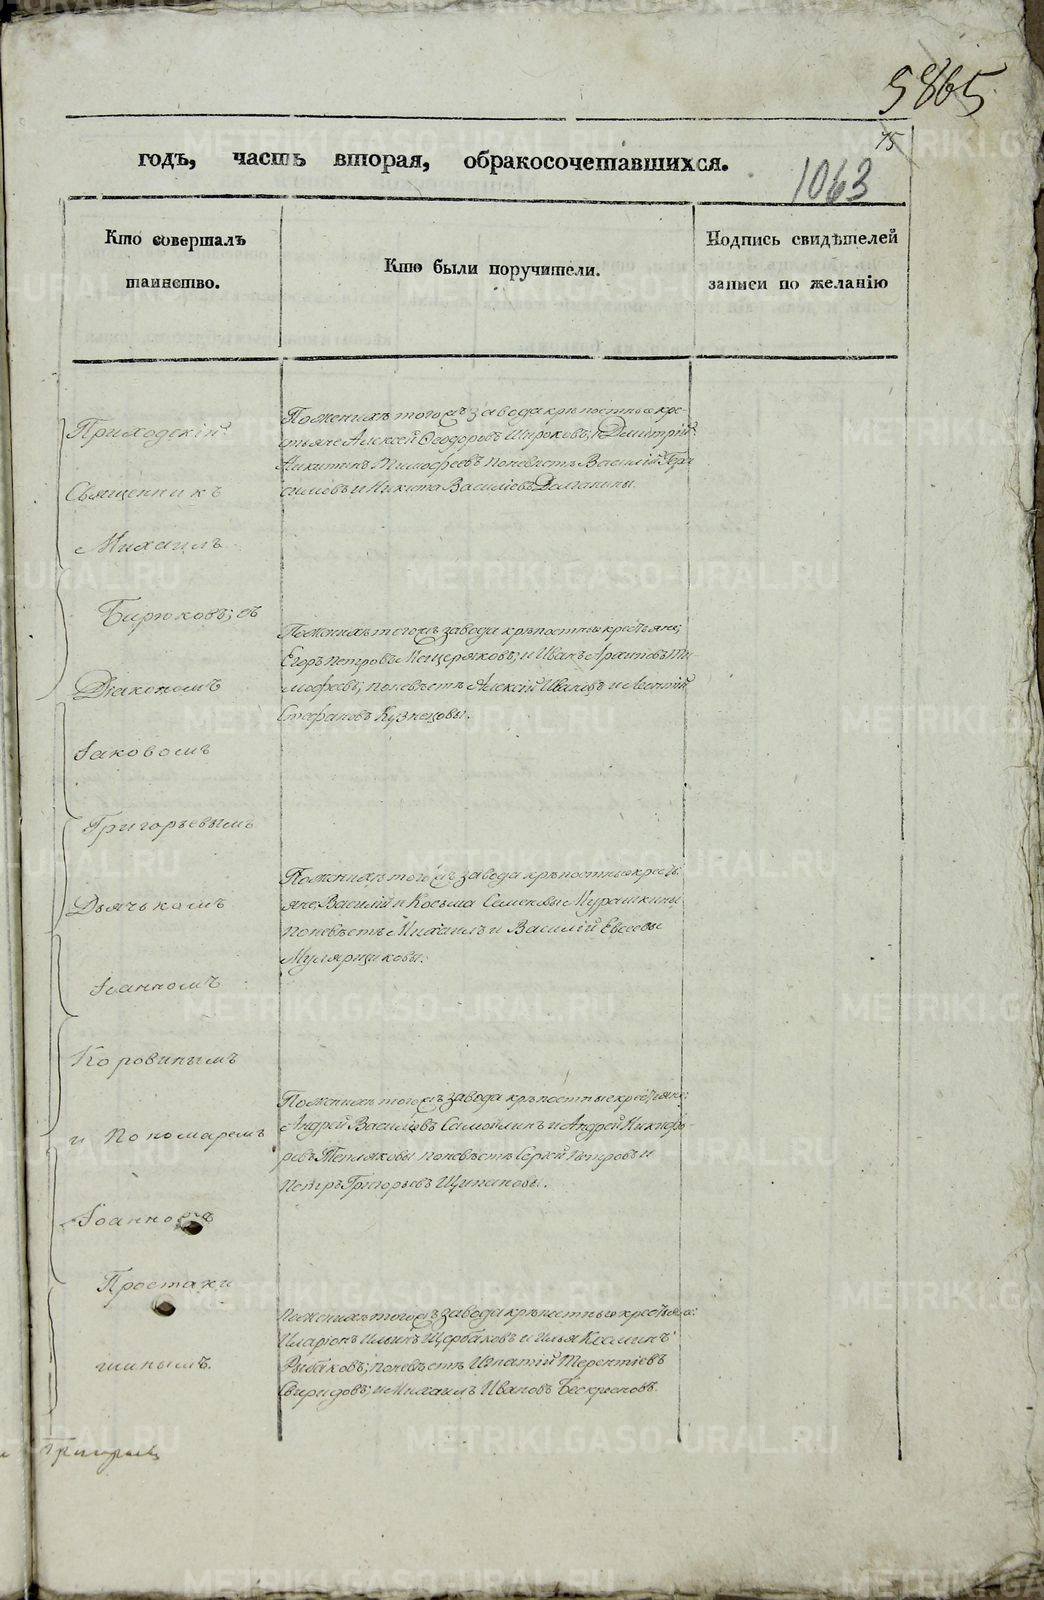 5865
75
годъ, часть вторая, обракосочетавшихся.
1063
Кто совершалъ
таинство.
Кто были поручители.
Подпись свидѣтелей
записи по желанію
Приходскій
Священникъ
Михаилъ
Бирюковъ; съ
Діакономъ
Іаковомъ
Григорьевымъ
Дьячькомъ
Іоанномъ
Коровинымъ
и Пономаремъ
Іоанномъ
Простаки
шинымъ.
Поженихѣ тогожъ завода крѣпостные кре-
стьяне Алексей Ѳеодоровъ Широковъ; и Димитрій
Никитинъ Тимофеевъ поневѣстѣ Василій Гера
симовъ и Никита Василіевъ Долганины.
Поженихѣ тогожъ завода крѣпостные крестьяне;
Егоръ Петровъ Мещеряковъ; и Иванъ Ти-
мофеевъ; поневѣстѣ Алексій Ивановъ и Леонтій
Стефановъ Кузнецовы.
Поженихѣ тогожъ завода крѣпостные кресть
яне Василій и Косьма Семеновы Мурашкины
поневѣстѣ Михаилъ и Василій Евсеевы
Мулярщиковы.
Поженихѣ тогожъ завода крѣпостные крестьяне:
Андрей Василіевъ Самойлинъ и Андрей Никифо-
ровъ Тепляковы поневѣстѣ Сергей Петровъ и
Петръ Григорьевъ Щипановы.
Поженихѣ тогожъ завода крѣпостные крестьяне:
Иларіонъ Ильинъ Щербаковъ и Илья
Рыбаковъ; поневѣстѣ Игнатій Терентіевъ
Свиридовъ; и Михаилъ Ивановъ Бескреповъ.
Григорьевъ
METRIKI.GASO-URAL.RU